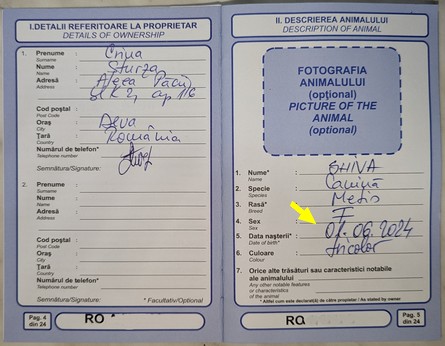 I.DETALII REFERITOARE LA PROPRIETAR
DETAILS OF OWNERSHIP
1. Prenume : Crina
Surname
Nume : Sturza
Name
Adresă : Aleea Păcii
Address
bl K2, ap 116
Cod poștal :
Post Code
Oraș : Deva
City
Țară : România
Country
Numărul de telefon* :
Telephone number
Semnătura/Signature:
2. Prenume :
Surname
Nume :
Name
Adresă :
Address
Cod poștal :
Post Code
Oraș :
City
Țară :
Country
Numărul de telefon* :
Telephone number
Semnătura/Signature: * Facultativ/Optional
Pag. 4
din 24
RO
II. DESCRIEREA ANIMALULUI
DESCRIPTION OF ANIMAL
FOTOGRAFIA
ANIMALULUI
(opțional)
PICTURE OF THE
ANIMAL
(optional)
1. Nume* : SHIVA
Name
2. Specie : Canină
Species
3. Rasă* : Metis
Breed
4. Sex : F
Sex
5. Data nașterii* : 01.06.2024
Date of birth*
6. Culoare : tricolor
Colour
7. Orice alte trăsături sau caracteristici notabile
ale animalului :
Any other notable features
or characteristics
of the animal
* Altfel cum este declarat(ă) de către proprietar / As stated by owner
RO
Pag. 5
din 24